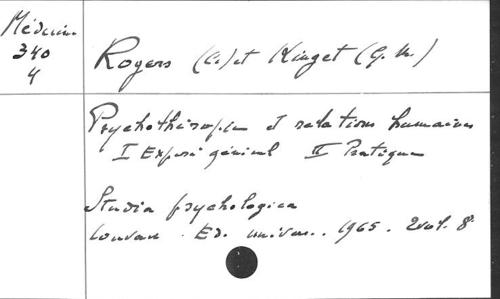 Médecine
340
4
Rogers (C.) et Kinget (G. M.)
Psychothérapie et relations humaines
I Exposé général II Pratique
Studia psychologica
Louvain. Ed. univers.. 1965. 2 vol. 8°